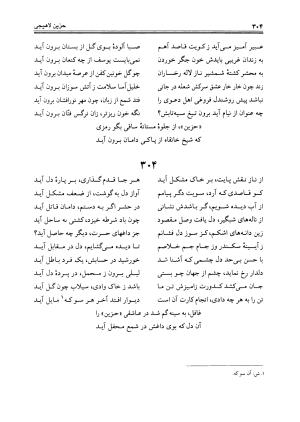 ۳۰۴
حزین لاهیجی
عبیر آمیز می‌آید زکویت قاصد آهم
صبا آلودهٔ بوی گل از بستان برون آید
به زندان غریبی بایدش خون جگر خوردن
نمی‌بایست یوسف که کنعان برون آید
به محشر کشتهٔ شمشیر ناز لاله رخساران
چو گل خونین کفن از عرصهٔ میدان برون آید
زند چون خار خار عشق سرکش شعله در جانی
خلیل‌آسا سلامت ز آتش سوزان برون آید
نیاید پیش روشندل فروغی اهل دعوی را
فتد شمع از زبان، چون مهر نورافشان برون آید
چه عنوان از نیام آید برون تیغ سیه‌تابش؟
نگه خون ریزتر، زان نرگس فتّان برون آید
«حزین»، از جلوهٔ مستانهٔ ساقی بگو رمزی
که شیخ خانقاه از پاکی دامان برون آید
۳۰۴
از ناز نقش پایت، بر خاک مشکل آید
هر جا قدم گذاری، بر پارهٔ دل آید
کو قاصدی که آرد، سویت دگر پیامم
آواز دل به گوشت، از ضعف مشکل آید
از آب دیده شویم، گر باشدش نشانی
در حشر اگر به دستم، دامان قاتل آید
از ناله‌های شبگیر، دل یافت وصل مقصود
چون باد شرطه خیزد، کشتی به ساحل آید
زین دانه‌های اشکم، کز سوز دل فشانم
جز داغهای حسرت، دیگر چه حاصل آید؟
ز آیینهٔ سکندر وز جام جم خلاصم
تا دیده می‌گشایم، دل در مقابل آید
با حسن بی حد دل چشمی که آشنا شد
خورشید در حسابش، یک فرد باطل آید
دلدار رخ نماید، چشم از جهان چو بستی
لیلی برون ز محمل، در پردهٔ دل آید
جان می‌کشد کدورت از آمیزش تن ما
باشد ز خاک وادی، سیلاب چون گل آید
چون سایه هر چه دادی، انجام کارت آن است
دیوار افتد آخر هر سو که¹ مایل آید
غافل، به سینه گم شد در عاشقی «حزین» را
آن دل که بوی داغش در شمع محفل آید
۱. ش: آن سو که.